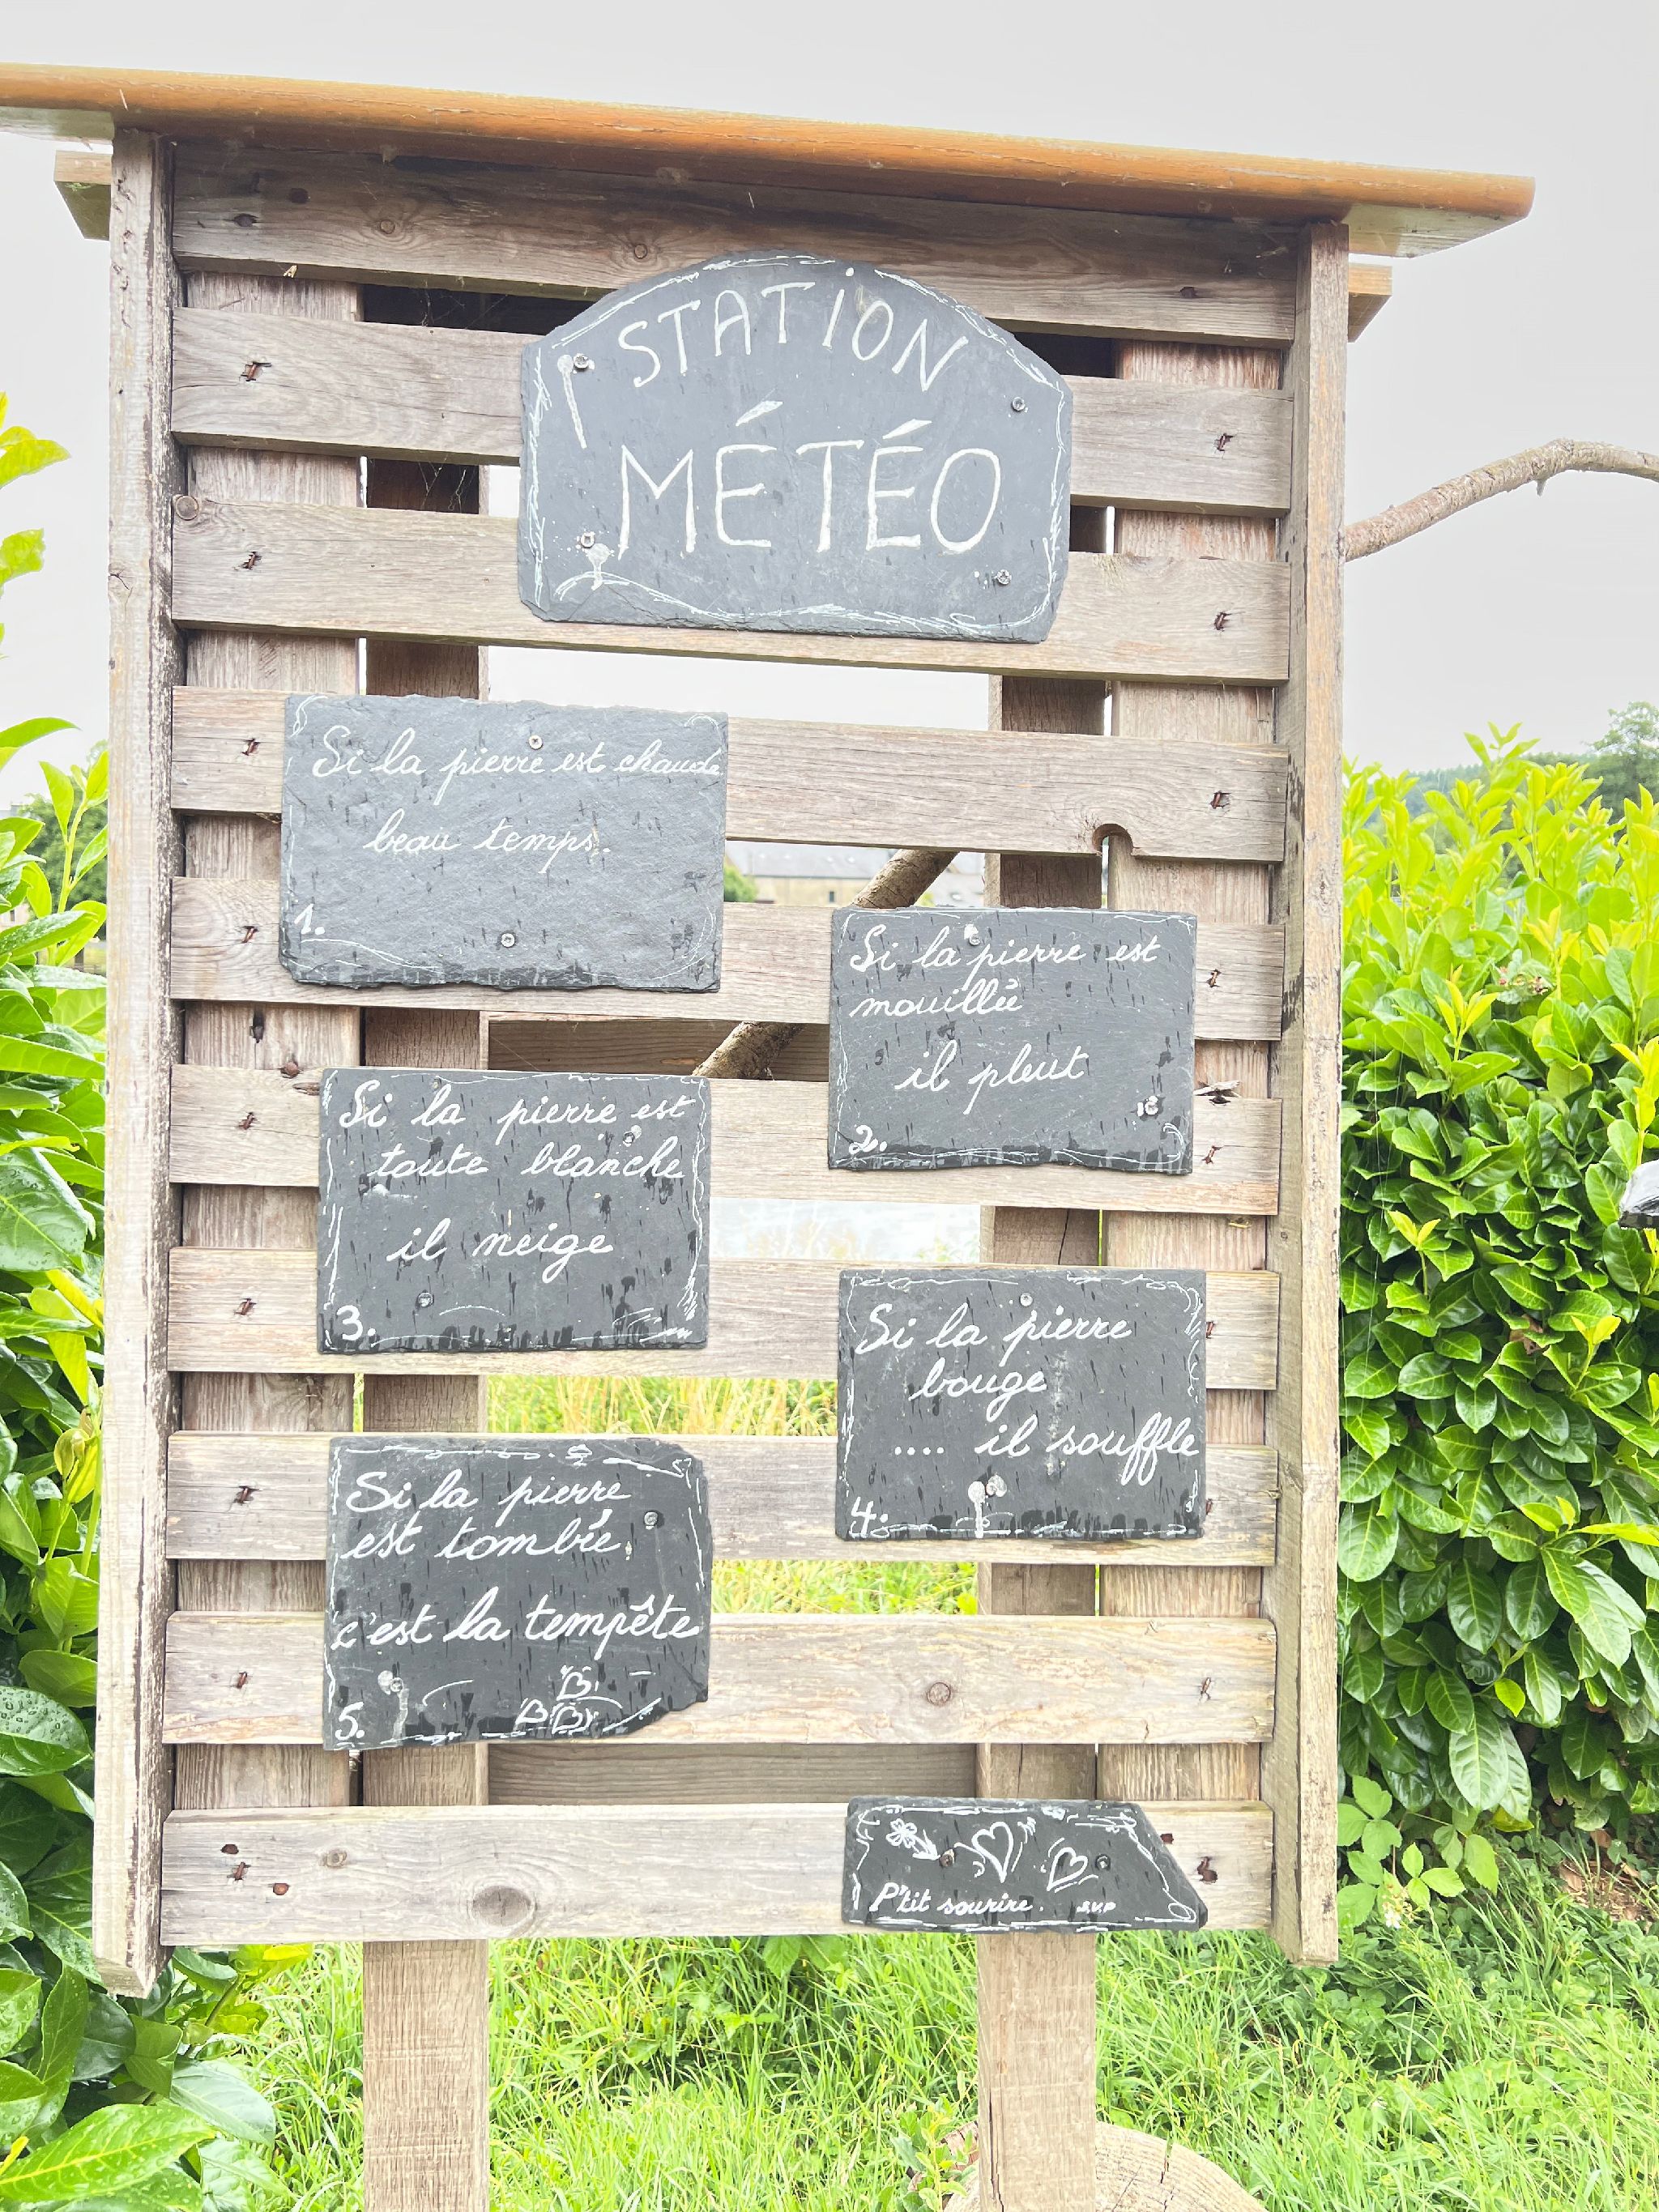 STATION
MÉTÉO
Si la pierre est chaude
beau temps.
1.
Si la pierre est
mouillée
il pleut
2.
Si la pierre est
toute blanche
il neige
3.
Si la pierre
bouge
.... il souffle
4.
Si la pierre
est tombée
c'est la tempête
5.
P'tit sourire. S.V.P